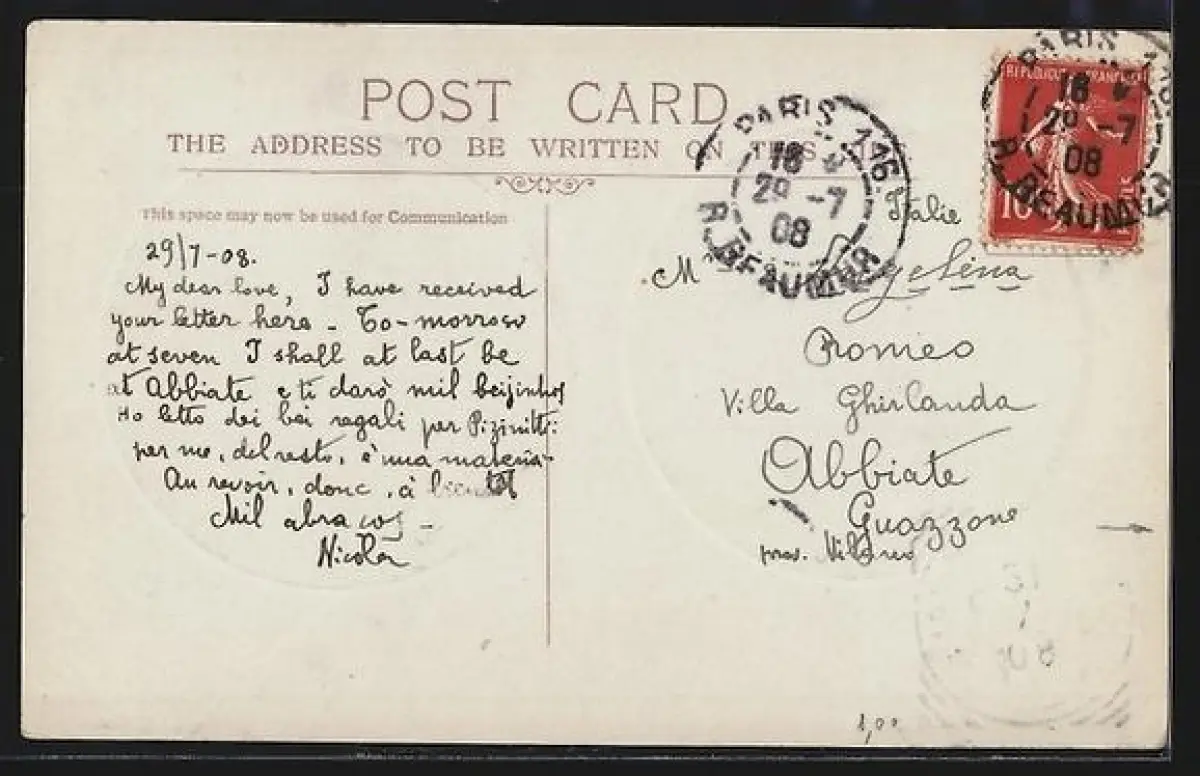 POST CARD
THE ADDRESS TO BE WRITTEN ON THIS
This space may now be used for Communication
29/7-08.
My dear love, I have received
your letter here - To-morrow
at seven I shall at last be
at Abbiate e ti darò mil beijinhos
Ho letto dei bei regali per Pizinitti:
per me, del resto, è una
Au revoir, donc, à bientôt
Mil abraços -
Nicola
PARIS 116
18
29 -7
08
R. BEAUMUR
REPUBLIQUE FRANÇAISE
10
PARIS 116
18
29 -7
08
R. BEAUM
Italie
M Angelina
Romeo
Villa Ghirlanda
Abbiate
Guazzone
prov. Milano
08
1,00